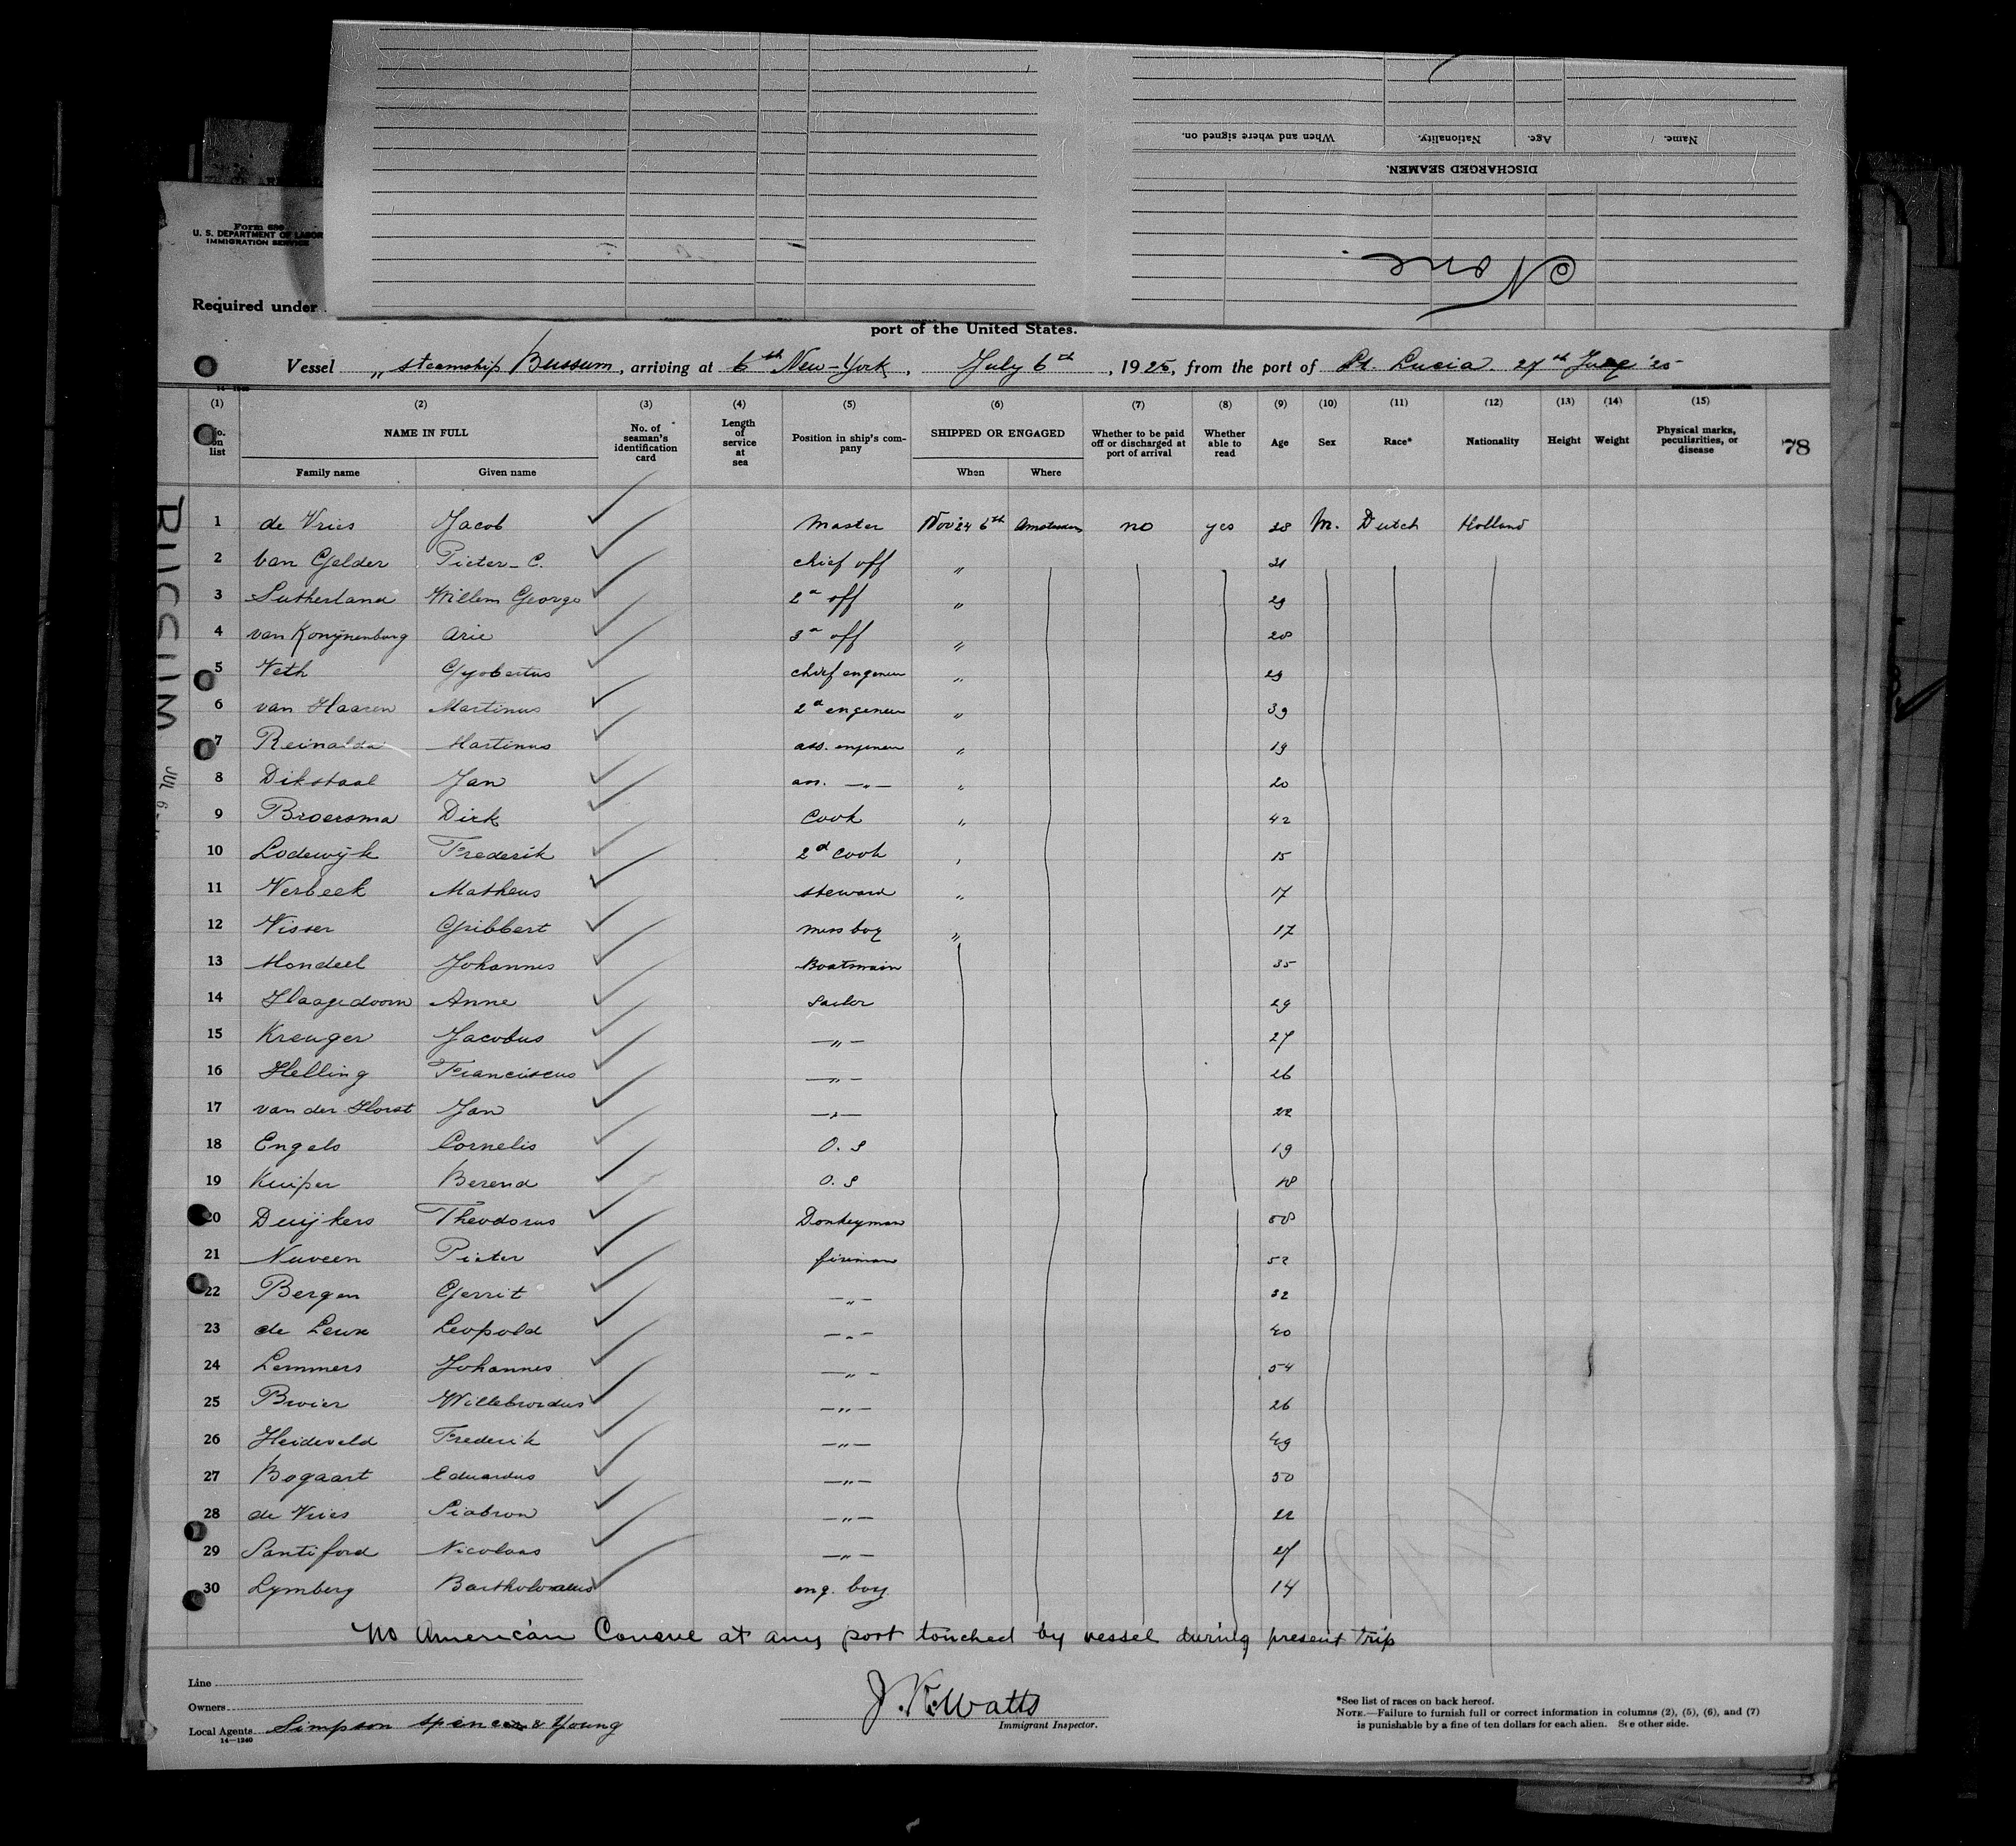 When and where signed on.
Nationality.
Age.
Name.
DISCHARGED SEAMEN.
None
Form 680
U. S. DEPARTMENT OF LABOR
IMMIGRATION SERVICE
Required under
port of the United States.
Vessel „ steamship Bussum, arriving at 6th New-York, July 6th, 1925, from the port of St. Lucia 27th June '25
(1) (2) (3) (4) (5) (6) (7) (8) (9) (10) (11) (12) (13) (14) (15)
No. on list NAME IN FULL Family name Given name No. of seaman's identification card Length of service at sea Position in ship's company SHIPPED OR ENGAGED When Where Whether to be paid off or discharged at port of arrival Whether able to read Age Sex Race* Nationality Height Weight Physical marks, peculiarities, or disease 78
BUSSUM JUL 6
1 de Vries Jacob Master Nov '24 6th Amsterdam no yes 28 M. Dutch Holland
2 van Gelder Pieter-C. chief off „ 31
3 Sutherland Willem George 2d off „ 29
4 van Konijnenburg Arie 3d off „ 28
5 Veth Gysbertus chief engeneer „ 29
6 van Haaren Martinus 2d engeneer „ 39
7 Reinalda Martinus ass. engeneer „ 19
8 Dikstaal Jan ass. —„— „ 20
9 Broersma Dirk Cook „ 42
10 Lodewijk Frederik 2d cook „ 15
11 Verbeek Matheus steward „ 17
12 Visser Gribbert mess boy „ 17
13 Mondeel Johannes Boatsmain 35
14 Haagedoorn Anne Sailor 29
15 Kreuger Jacobus —„— 27
16 Helling Franciscus —„— 26
17 van der Horst Jan —„— 22
18 Engels Cornelis O. S 19
19 Kuiper Berend O. S 18
20 Duijkers Theodorus Donkeyman 58
21 Nuveen Pieter fireman 52
22 Bergen Gerrit —„— 32
23 de Leuw Leopold —„— 40
24 Lemmers Johannes —„— 54
25 Broier Willebrordus —„— 26
26 Heideveld Frederik —„— 49
27 Bogaart Eduardus —„— 50
28 de Vries Siabron —„— 22
29 Santiford Nicolaas —„— 27
30 Lymberg Bartholomeus eng. boy 14
No American Consul at any port touched by vessel during present trip
Line
Owners
Local Agents Simpson Spence & Young
14—1240
J. K. Watts
Immigrant Inspector.
*See list of races on back hereof.
NOTE.—Failure to furnish full or correct information in columns (2), (5), (6), and (7)
is punishable by a fine of ten dollars for each alien. See other side.